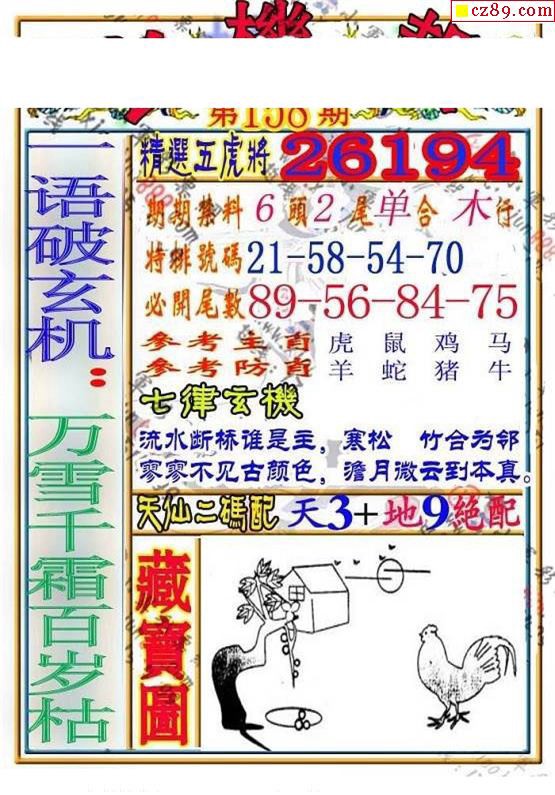 cz89.com
第158期
一语破玄机：万雪千霜百岁枯
精選五虎將 26194
期期禁料 6 頭 2 尾 单 合 木 行
特排號碼 21-58-54-70
必開尾數 89-56-84-75
參考主肖 虎 鼠 鸡 马
參考防肖 羊 蛇 猪 牛
七律玄機
流水断桥谁是主，寒松 竹合为邻
寥寥不见古颜色，澹月微云到本真。
天仙二碼配 天3+地9絕配
藏寶圖